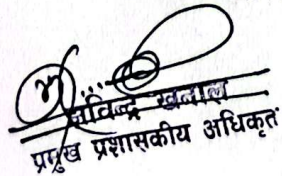 रविन्द्र खनाल
प्रमुख प्रशासकीय अधिकृत